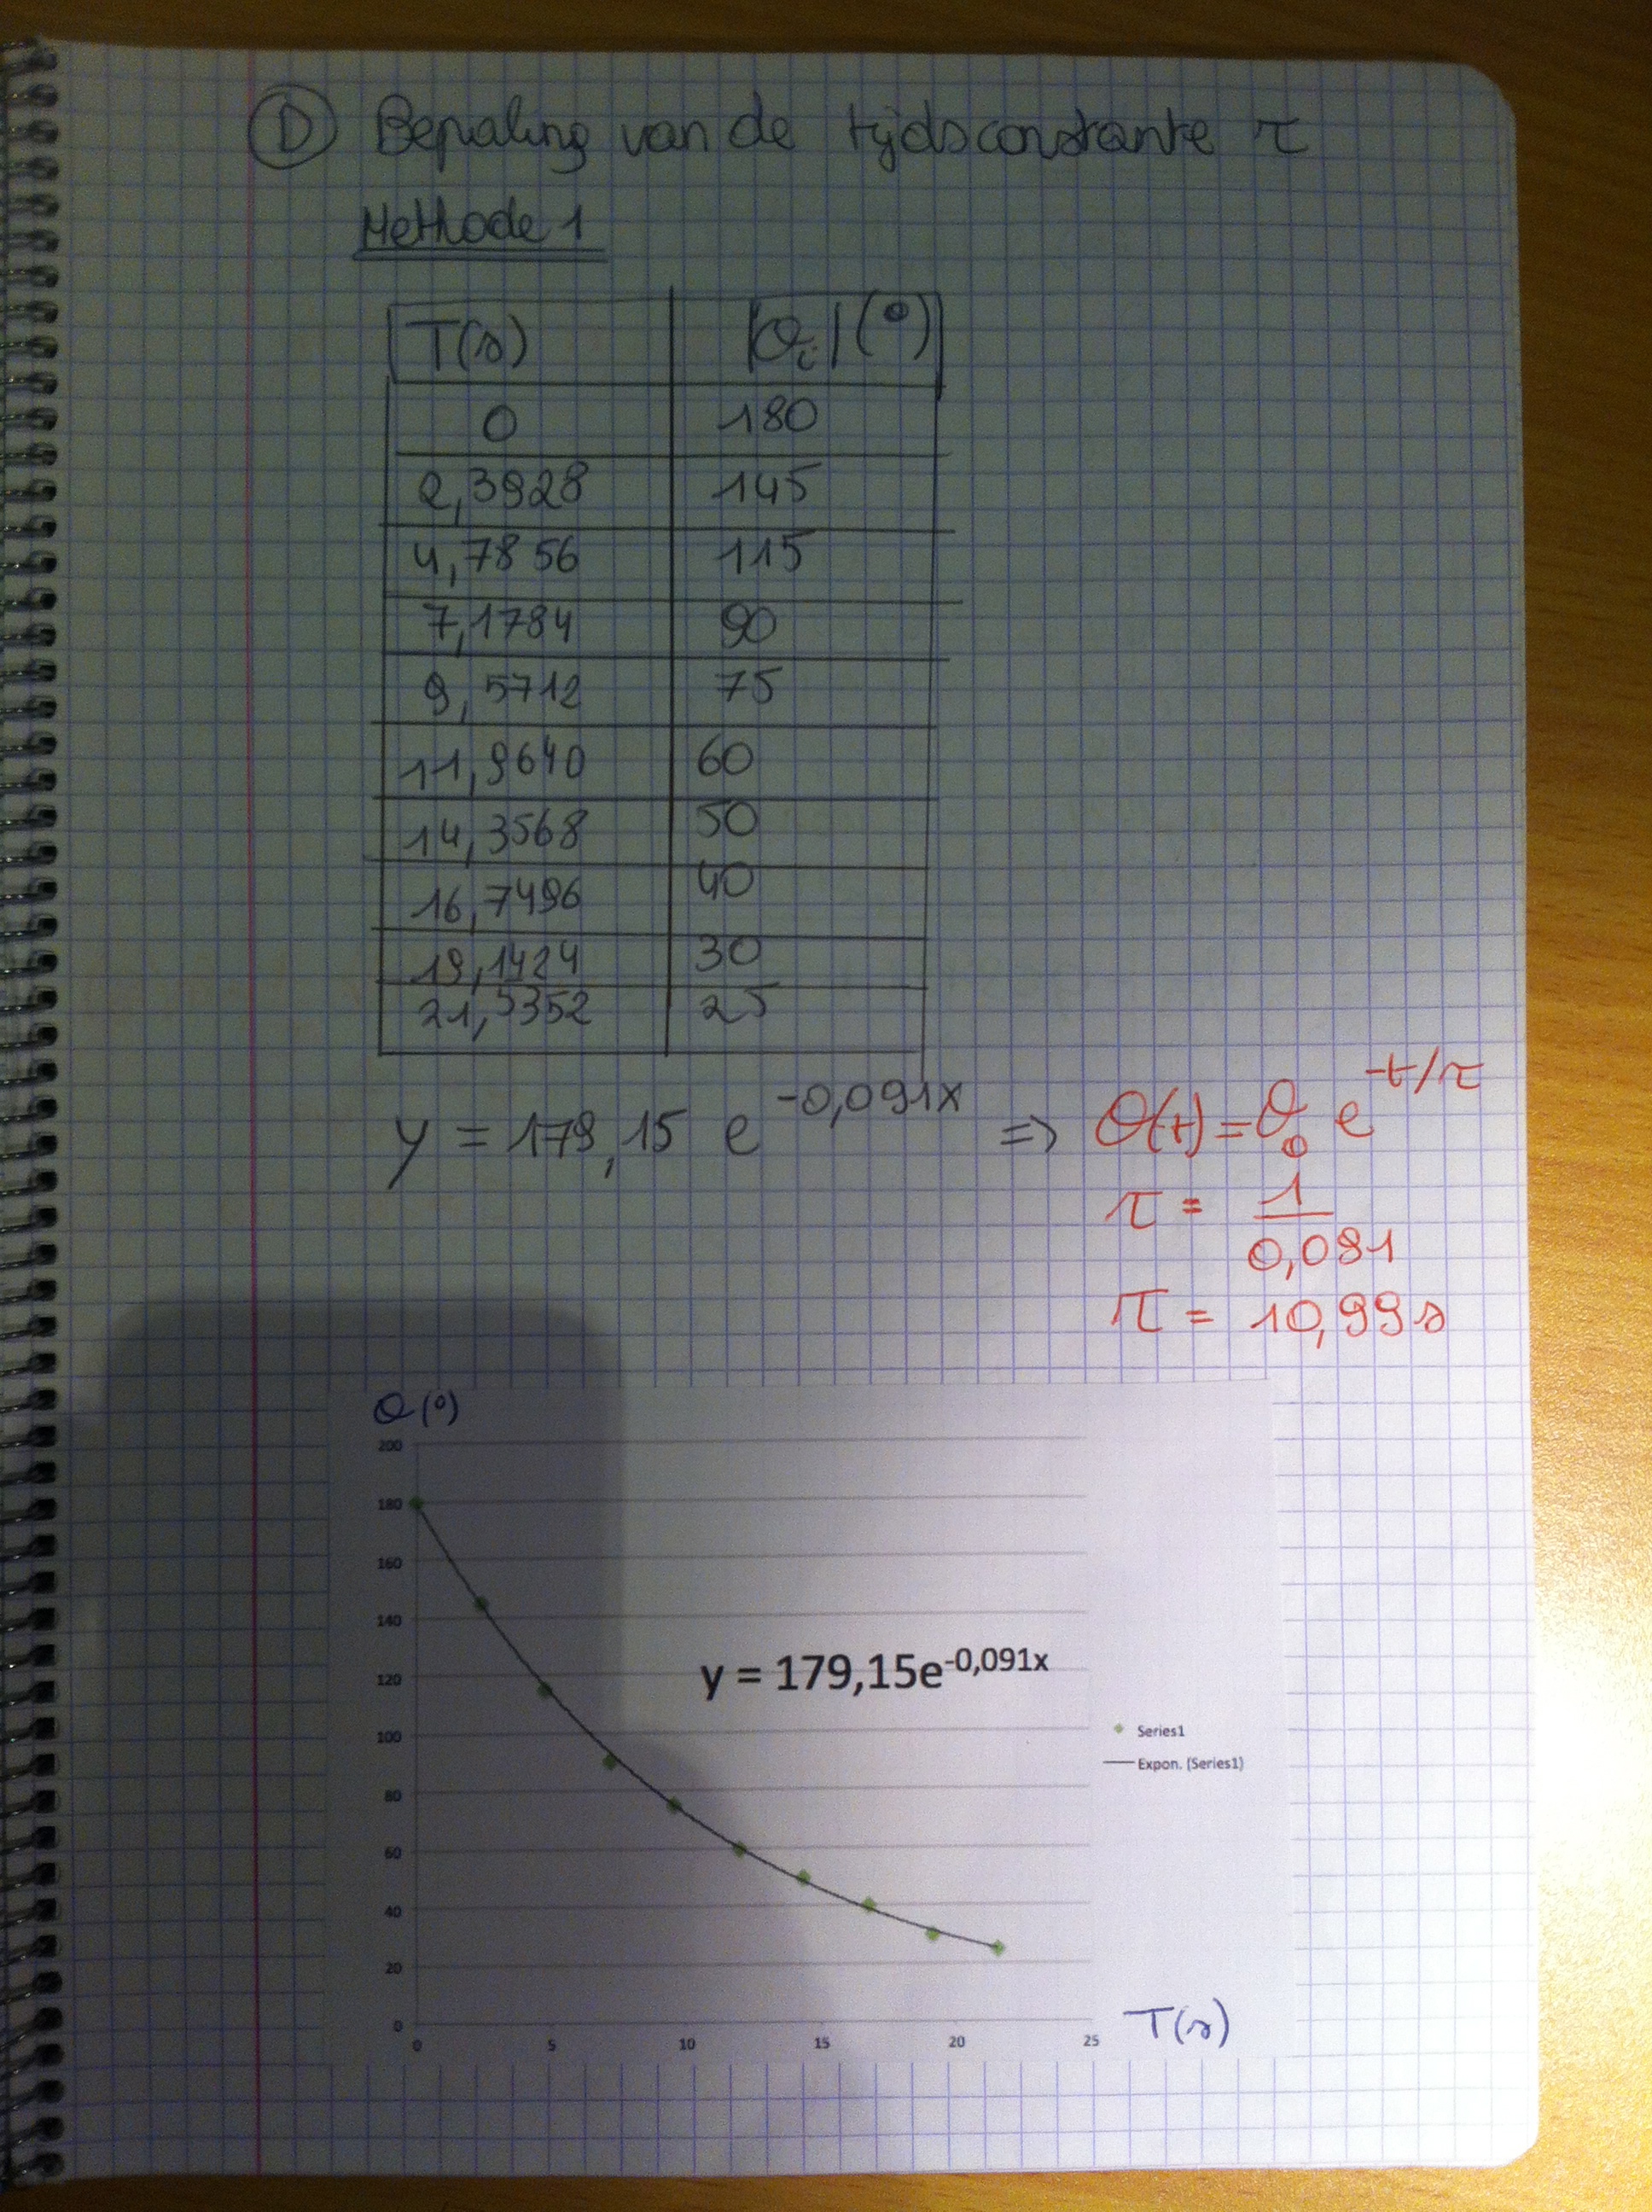 D Bepaling van de tijdsconstante τ
Methode 1
T(s) |θi| (°)
0 180
2,3928 145
4,7856 115
7,1784 90
9,5712 75
11,9640 60
14,3568 50
16,7496 40
19,1424 30
21,5352 25
y = 179,15 e^-0,091x => θ(t) = θ0 e^-t/τ
τ = 1/0,091
τ = 10,99 s
θ (°)
200
180
160
140
120
y = 179,15e^-0,091x
100
Series1
Expon. (Series1)
80
60
40
20
0
0 5 10 15 20 25 T(s)